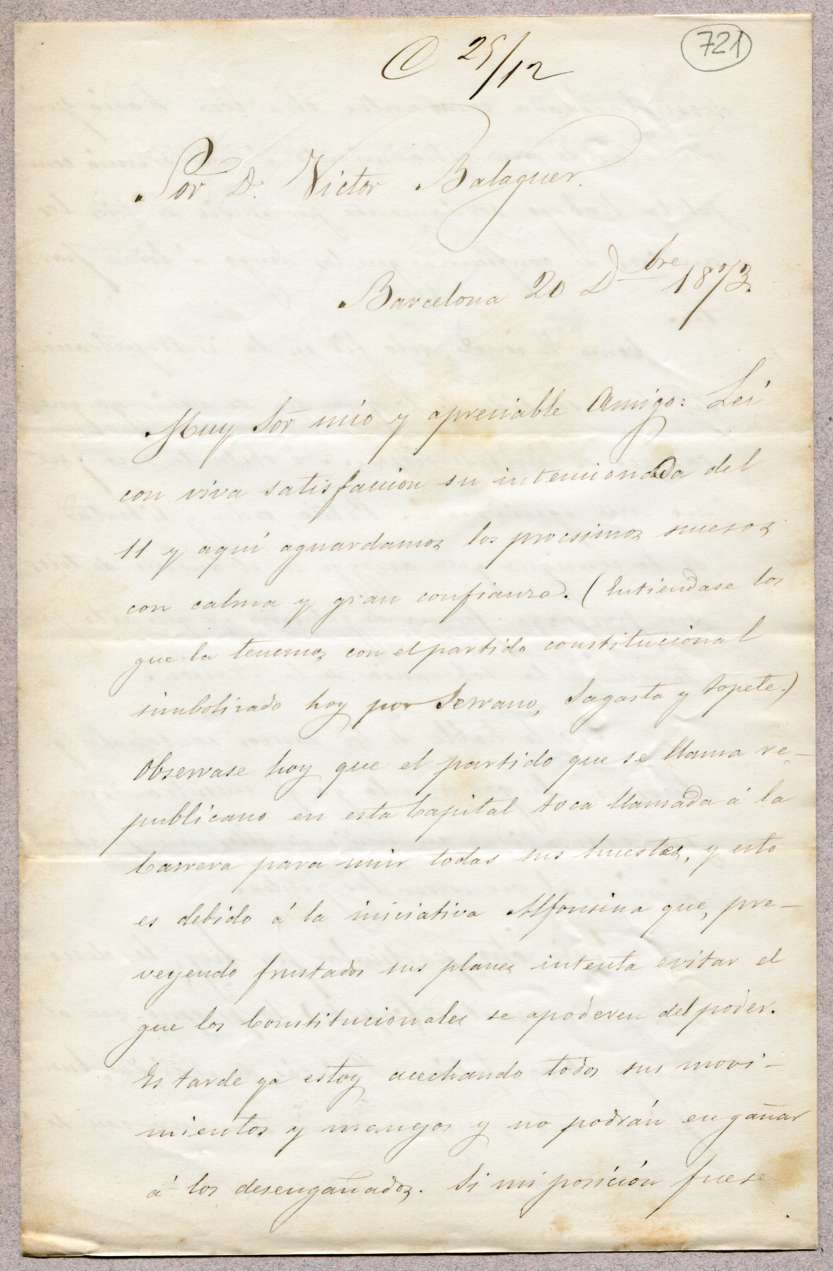 C 25/12
721
Sor D. Victor Balaguer.
Barcelona 20 Dbre 1873.
Muy Sor mio y apreciable Amigo: Leí
con viva satisfaccion su intencionada del
11 y aquí aguardamos los procsimos sucesos
con calma y gran confianza. (Entiendase los
que la tenemos con el partido constitucional
simbolizado hoy por Serrano, Sagasta y Topete.)
Observase hoy que el partido que se llama re-
publicano en esta Capital toca llamada á la
Carrera para unir todas sus huestes, y esto
es debido á la iniciativa Alfonsina que, pre-
veyendo frustados sus planes intenta evitar el
que los Constitucionales se apoderen del poder.
Es tarde ya estoy acechando todos sus movi-
mientos y manejos y no podrán engañar
á los desengañados. Si mi posición fuese